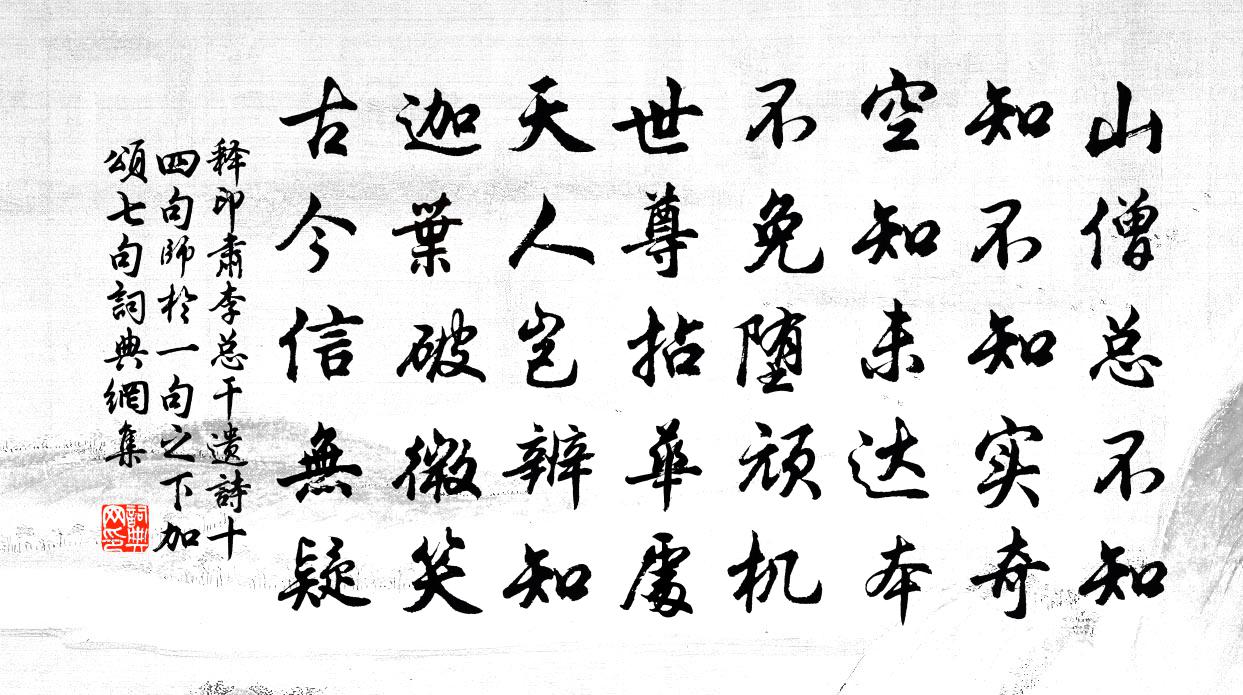 山僧总不知
知不知实奇
空知未达本
不免堕顽机
世尊拈華處
天人岂辨知
迦葉破微笑
古今信無疑
释印肃李总干遗詩十
四句師於一句之下加
頌七句詞典網集
詞典
网印